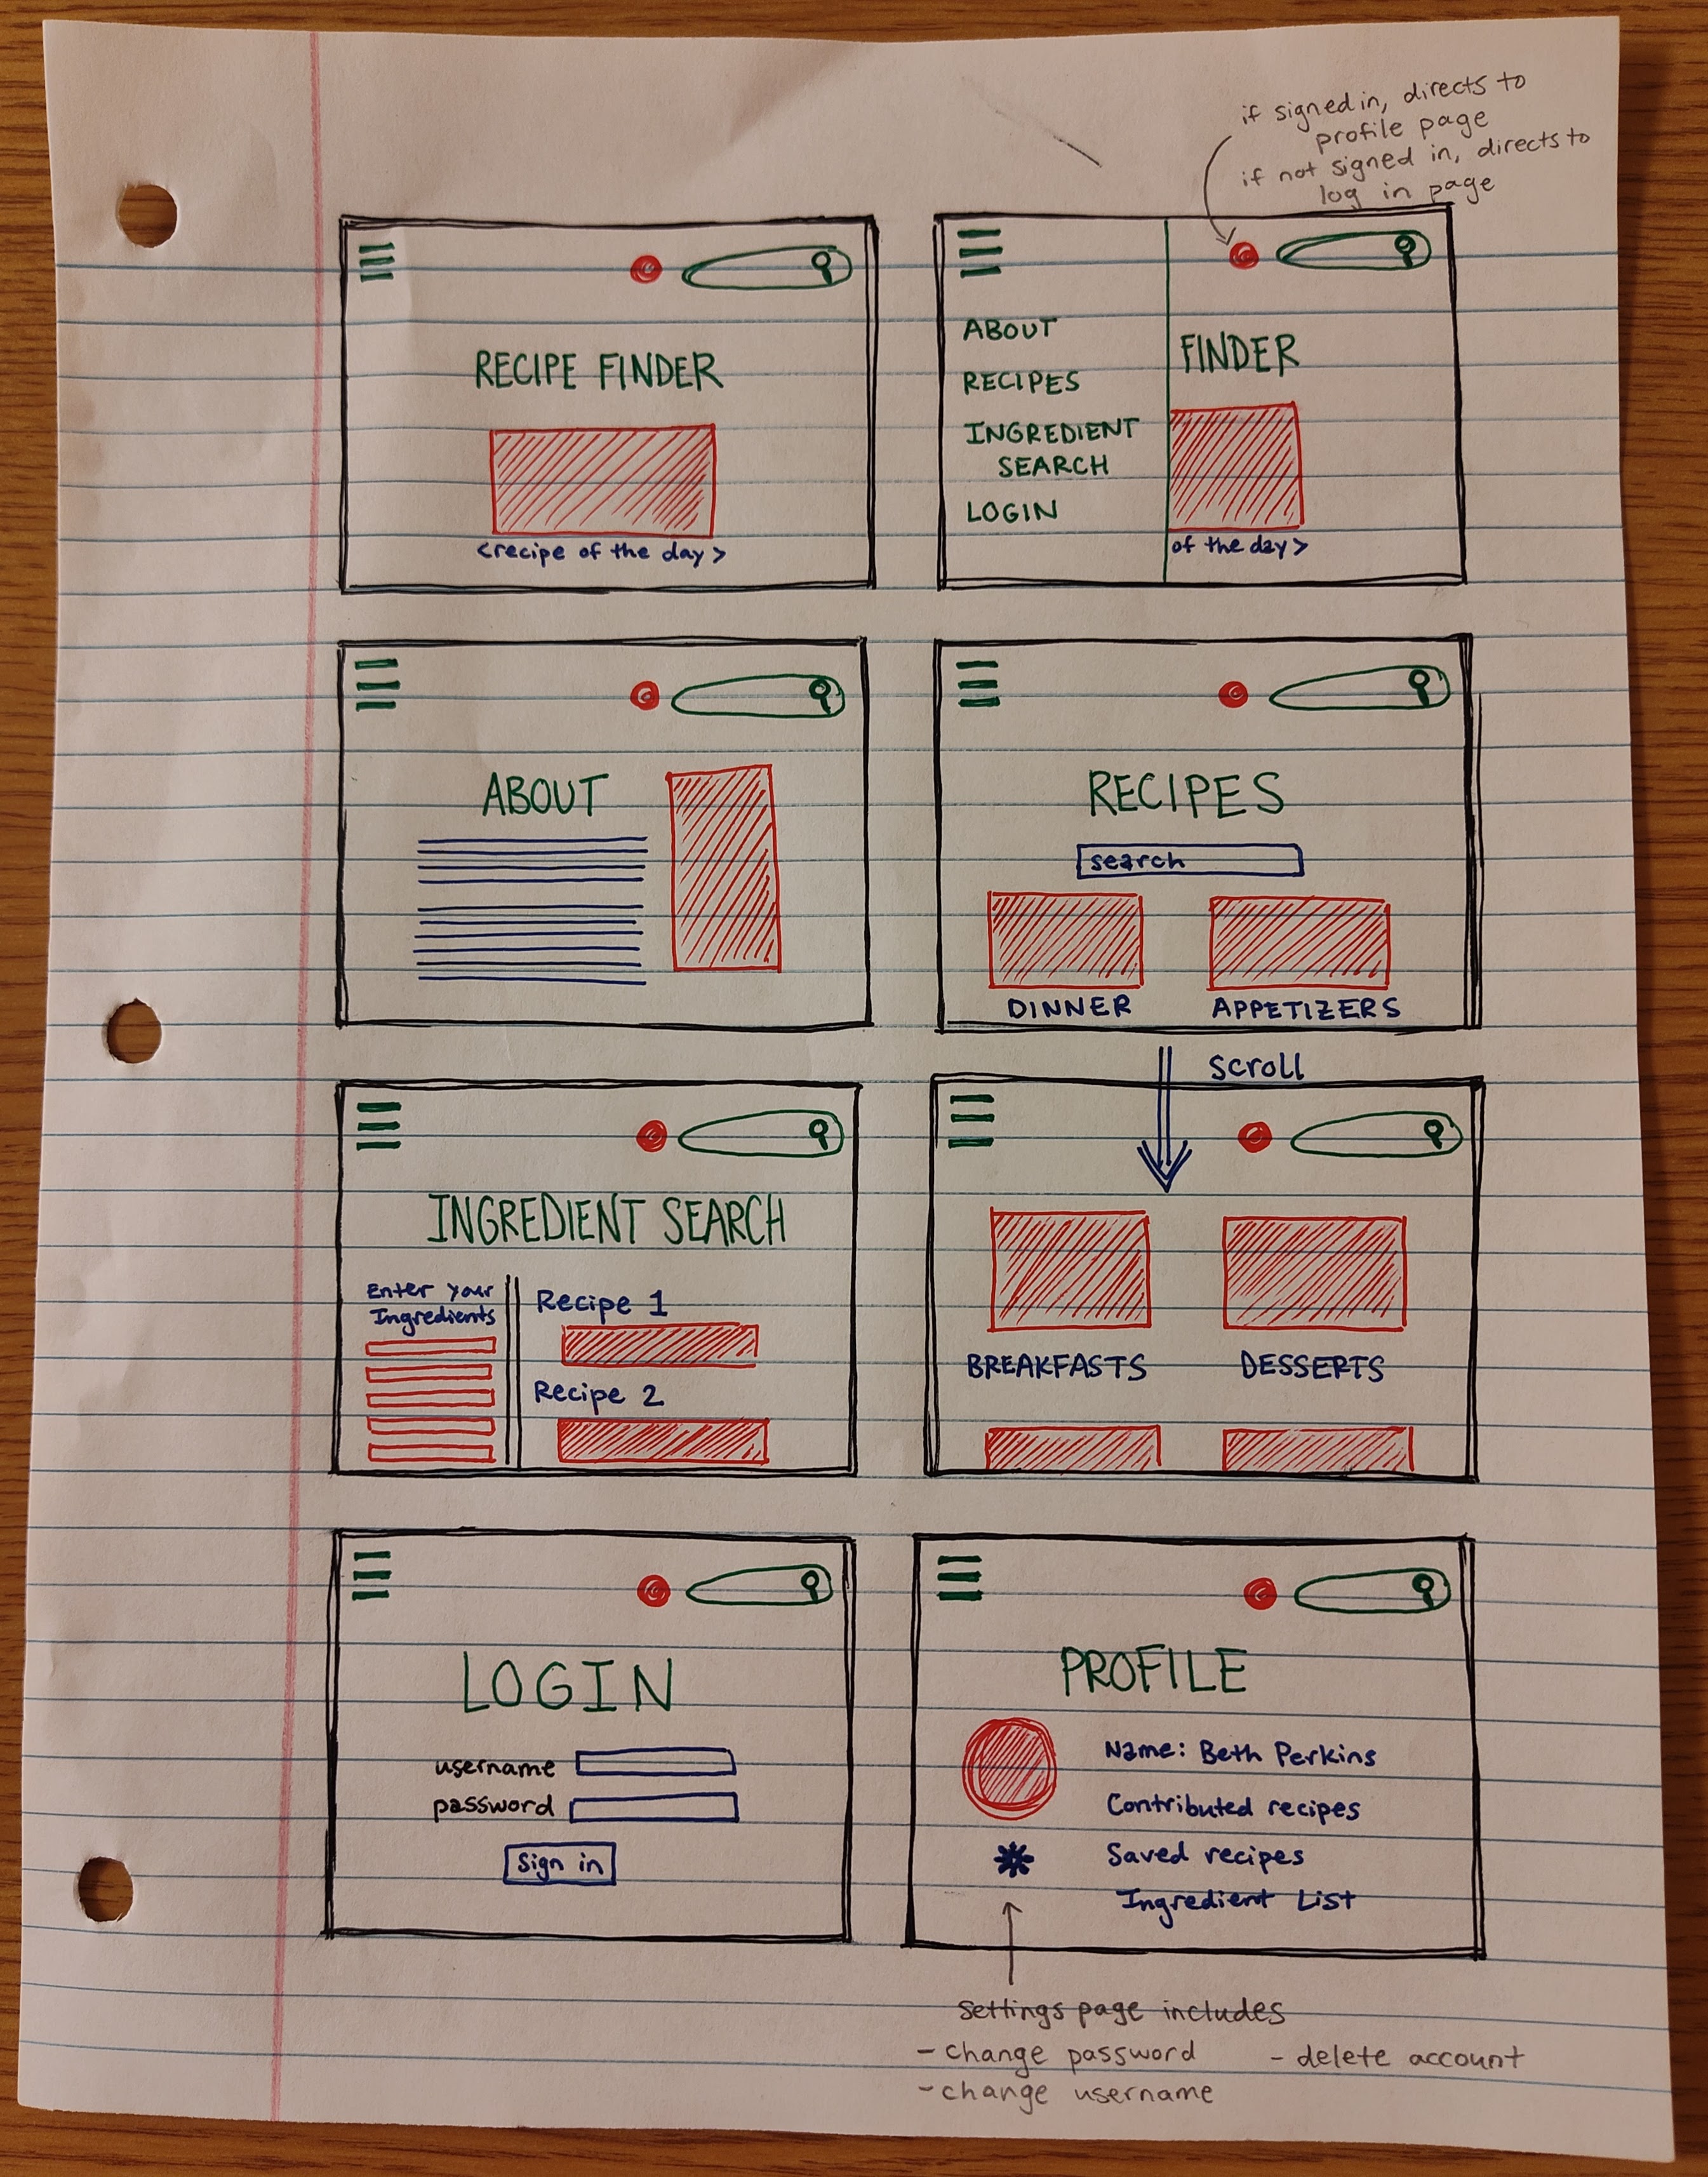 if signed in, directs to
profile page
if not signed in, directs to
log in page
RECIPE FINDER
<recipe of the day>
ABOUT
RECIPES
INGREDIENT
SEARCH
LOGIN
FINDER
of the day>
ABOUT
RECIPES
search
DINNER
APPETIZERS
scroll
INGREDIENT SEARCH
Enter your
Ingredients
Recipe 1
Recipe 2
BREAKFASTS
DESSERTS
LOGIN
username
password
Sign in
PROFILE
Name: Beth Perkins
Contributed recipes
Saved recipes
Ingredient List
settings page includes
- change password
- delete account
- change username